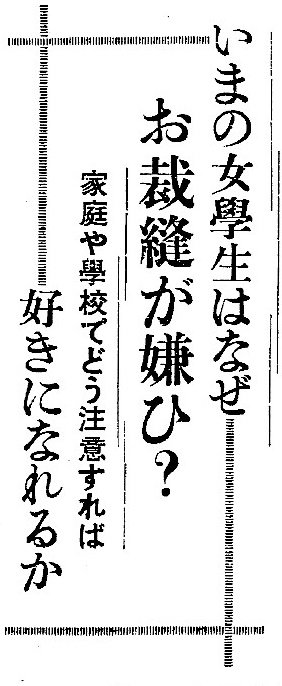 いまの女學生はなぜ
お裁縫が嫌ひ?
家庭や學校でどう注意すれば
好きになれるか